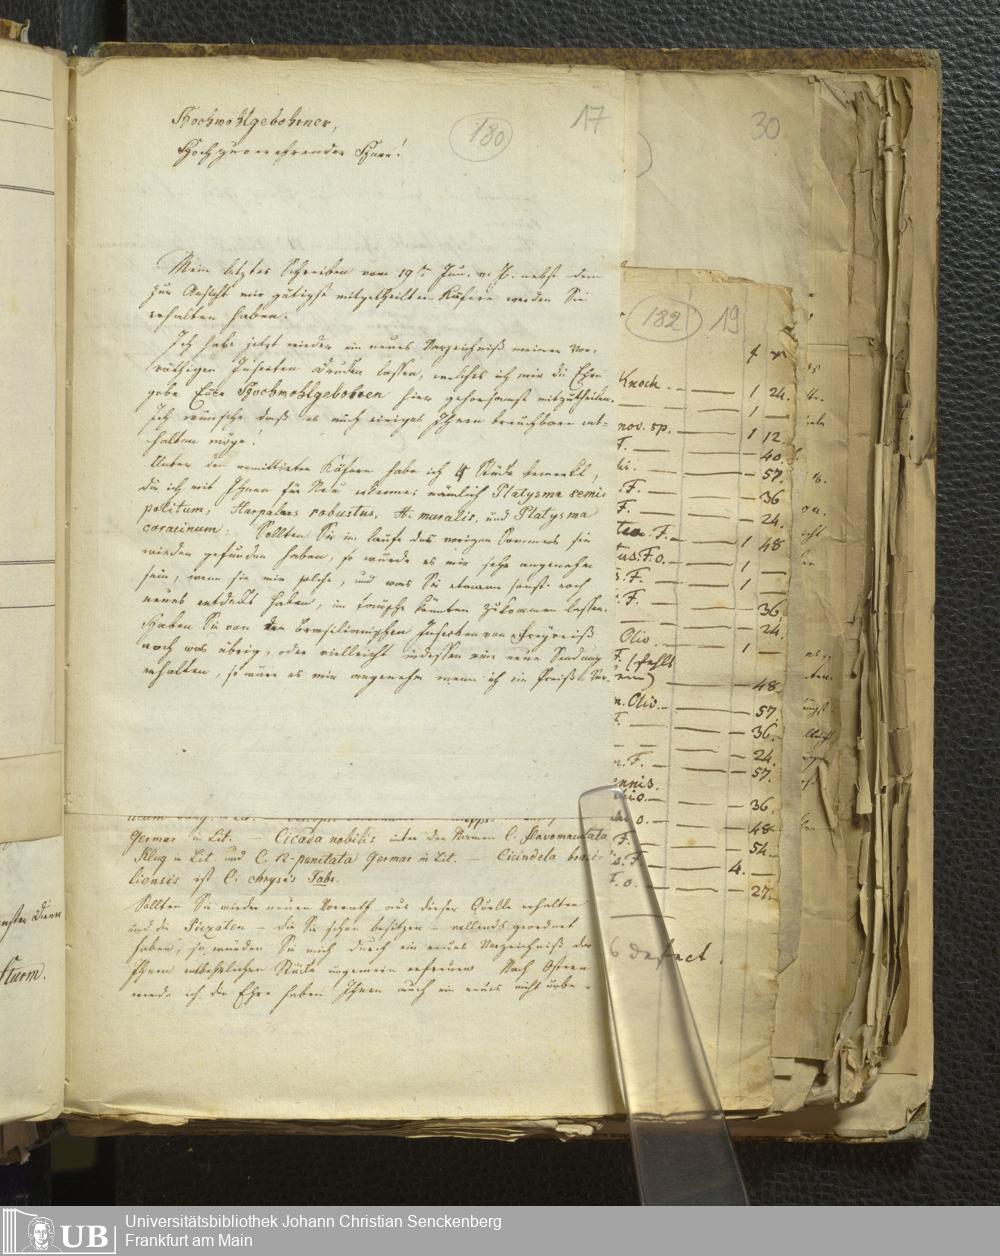 180
17
30
Hochwohlgebohrner,
Hochzuverehrender Herr!
Mein letztes Schreiben vom 19ten Jun. v. J. nebst den
zur Ansicht mir gütigst mitgetheilten Käfern werden Sie
erhalten haben.
Ich habe jetzt wieder ein neues Verzeichniß meiner vor-
räthigen Insecten drucken lassen, welches ich mir die Ehre
gebe Euer Hochwohlgebohren hier gehorsamst mitzutheilen.
Ich wünsche daß es auch einiges Ihnen brauchbare ent-
halten möge.
Unter den remittirten Käfern habe ich 4 Stücke bemerkt,
die ich mit Ihnen für Neu erkenne; nämlich Platysma semi
politum, Harpalus robustus, H. muralis, und Platysma
coracinum. Sollten Sie im laufe des vorigen Sommers sie
wieder gefunden haben, so würde es mir sehr angenehm
sein, wenn sie mir solche, und was Sie etwann sonst noch
neues entdeckt haben, im Tausche könnten zukommen lassen.
Haben Sie von den Brasilianischen Insecten von Freyreiß
noch was übrig, oder vielleicht indessen eine neue Sendung
erhalten, so wäre es mir angenehm wenn ich ein Preiß-Ver-
Germar in Lit. — Cicada nobilis unter den Namen C. flavomaculata
Klug in Lit und C. 12-punctata Germar in Lit. — Cicindela brasi-
liensis ist C. chrysis Fabr.
Sollten Sie wieder neuen Vorrath aus dieser Quelle erhalten
und die Piezaten — die Sie schon besitzen — vollends geordnet
haben, so würden Sie mich durch ein neues Verzeichniß der
Ihnen entbehrlichen Stücke ungemein erfreuen. Nach Ostern
werde ich die Ehre haben Ihnen auch ein neues nicht unbe-
Sturm.
182
19
Knoch. — 1 24.
— 1 —
nov. sp. — 1 12.
F. — 40.
— 57.
F. — 36
F. — 24.
F. — 1 48
us. F. o. — 1 —
F. — 1 —
F. — 36.
— 24.
Oliv. 1 —
F. (fehlt
ein) — 48.
n. Oliv. — 57.
— 36.
— 24.
n. F. — 57.
ennis.
— 36.
o. — 48.
F. — 54.
F. — 4. —
F. o. — 27.
6 defect.
UB
Universitätsbibliothek Johann Christian Senckenberg
Frankfurt am Main